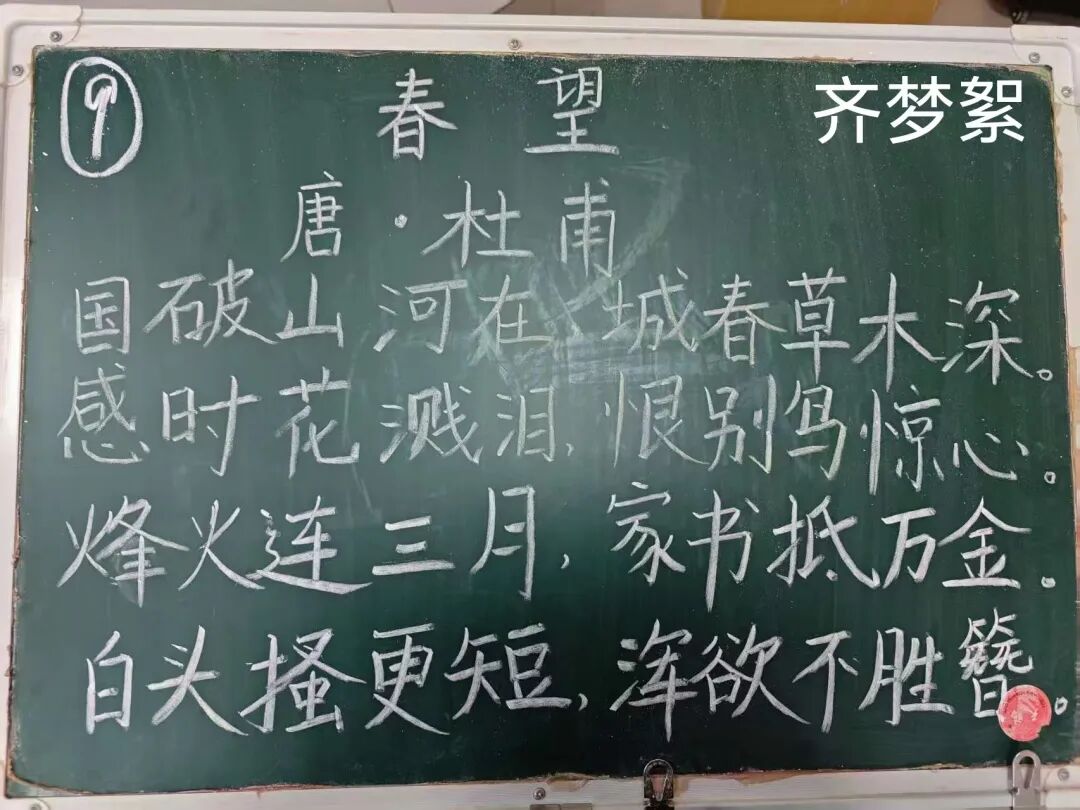 ⑨ 春望 齐梦絮
唐·杜甫
国破山河在 城春草木深。
感时花溅泪,恨别鸟惊心。
烽火连三月,家书抵万金。
白头搔更短,浑欲不胜簪。